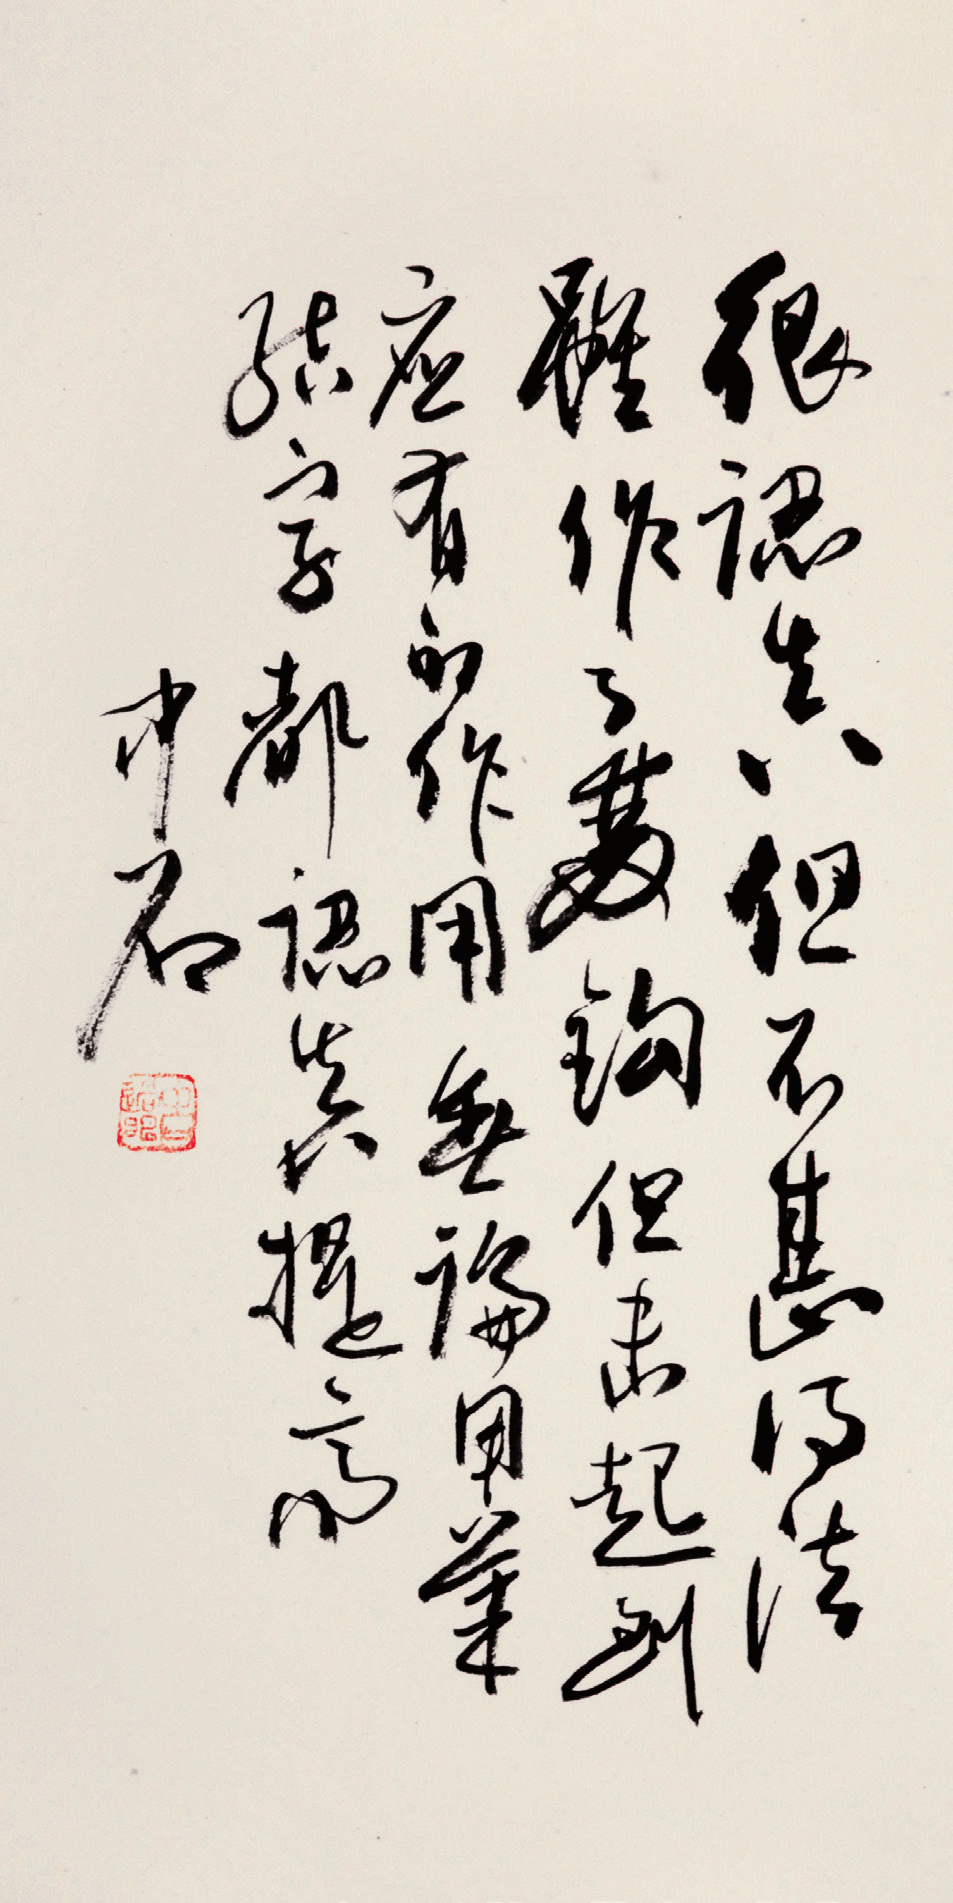 很認真但不甚得法
雖作了雙鈎但未起到
應有的作用無論用筆
結字都認真提高
中石